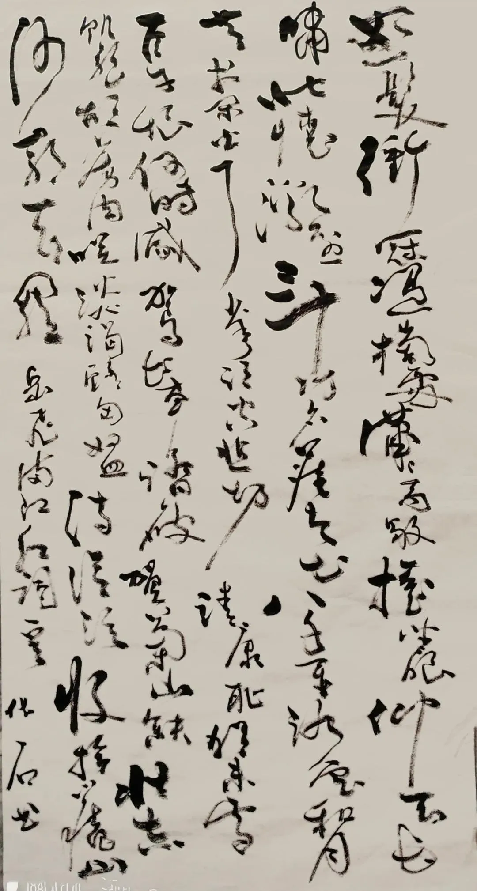 怒髮衝冠憑欄處瀟瀟雨歇擡望眼仰天長
嘯壯懷激烈三十功名塵與土八千里路雲和月
莫等閑白了少年頭空悲切靖康恥猶未雪
臣子恨何時滅駕長車踏破賀蘭山缺壯志
飢餐胡虜肉笑談渴飲匈奴血待從頭收拾舊山
河朝天闕岳飛滿江紅詞石書